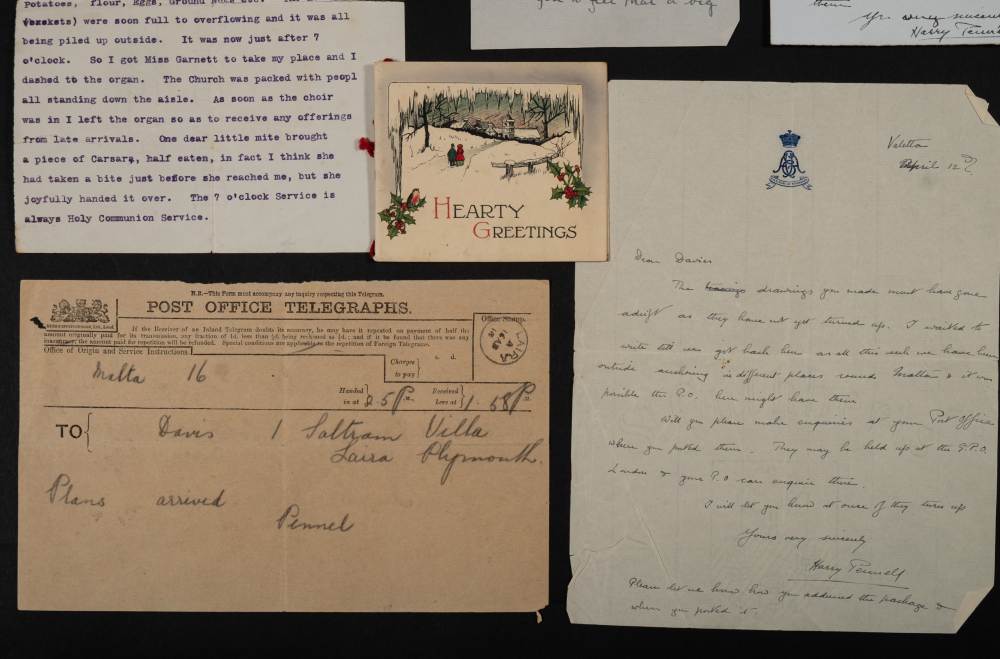 Potatoes, flour, Eggs, Ground
) were soon full to overflowing and it was all
being piled up outside. It was now just after 7
o'clock. So I got Miss Garnett to take my place and I
dashed to the organ. The Church was packed with peopl
all standing down the aisle. As soon as the choir
was in I left the organ so as to receive any offerings
from late arrivals. One dear little mite brought
a piece of Carsara, half eaten, in fact I think she
had taken a bite just before she reached me, but she
joyfully handed it over. The 7 o'clock Service is
always Holy Communion Service.
that a big
them
Yrs very sincerely
Harry Penne
HEARTY
GREETINGS
N.B.—This Form must accompany any inquiry respecting this Telegram.
POST OFFICE TELEGRAPHS.
If the Receiver of an Inland Telegram doubts its accuracy, he may have it repeated on payment of half the
amount originally paid for its transmission, any fraction of 1d. less than ½d. being reckoned as ½d.; and if it be found that there was any
inaccuracy, the amount paid for repetition will be refunded. Special conditions are applicable to the repetition of Foreign Telegrams.
Office Stamp.
LAIRA
Office of Origin and Service Instructions
Charges
to pay
s. d.
Malta 16
Handed
in at
2.5 P M.,
Received
here at
1.58 P M.
TO
Davis 1 Saltram Villa
Laira Plymouth.
Plans arrived
Pennel
Valetta
April 12
Dear Davies
The drawings you made must have gone
adrift as they have not yet turned up. I waited to
write till we got back here as all this week we have been
outside anchoring in different places round Malta & it was
possible the P.O. here might have them
Will you please make enquiries at your Post Office
where you posted them. They may be held up at the G.P.O.
London & your P.O can enquire there.
I will let you know at once if they turn up
Yours very sincerely
Harry Pennell
Please let me know how you addressed the package &
when you posted it.